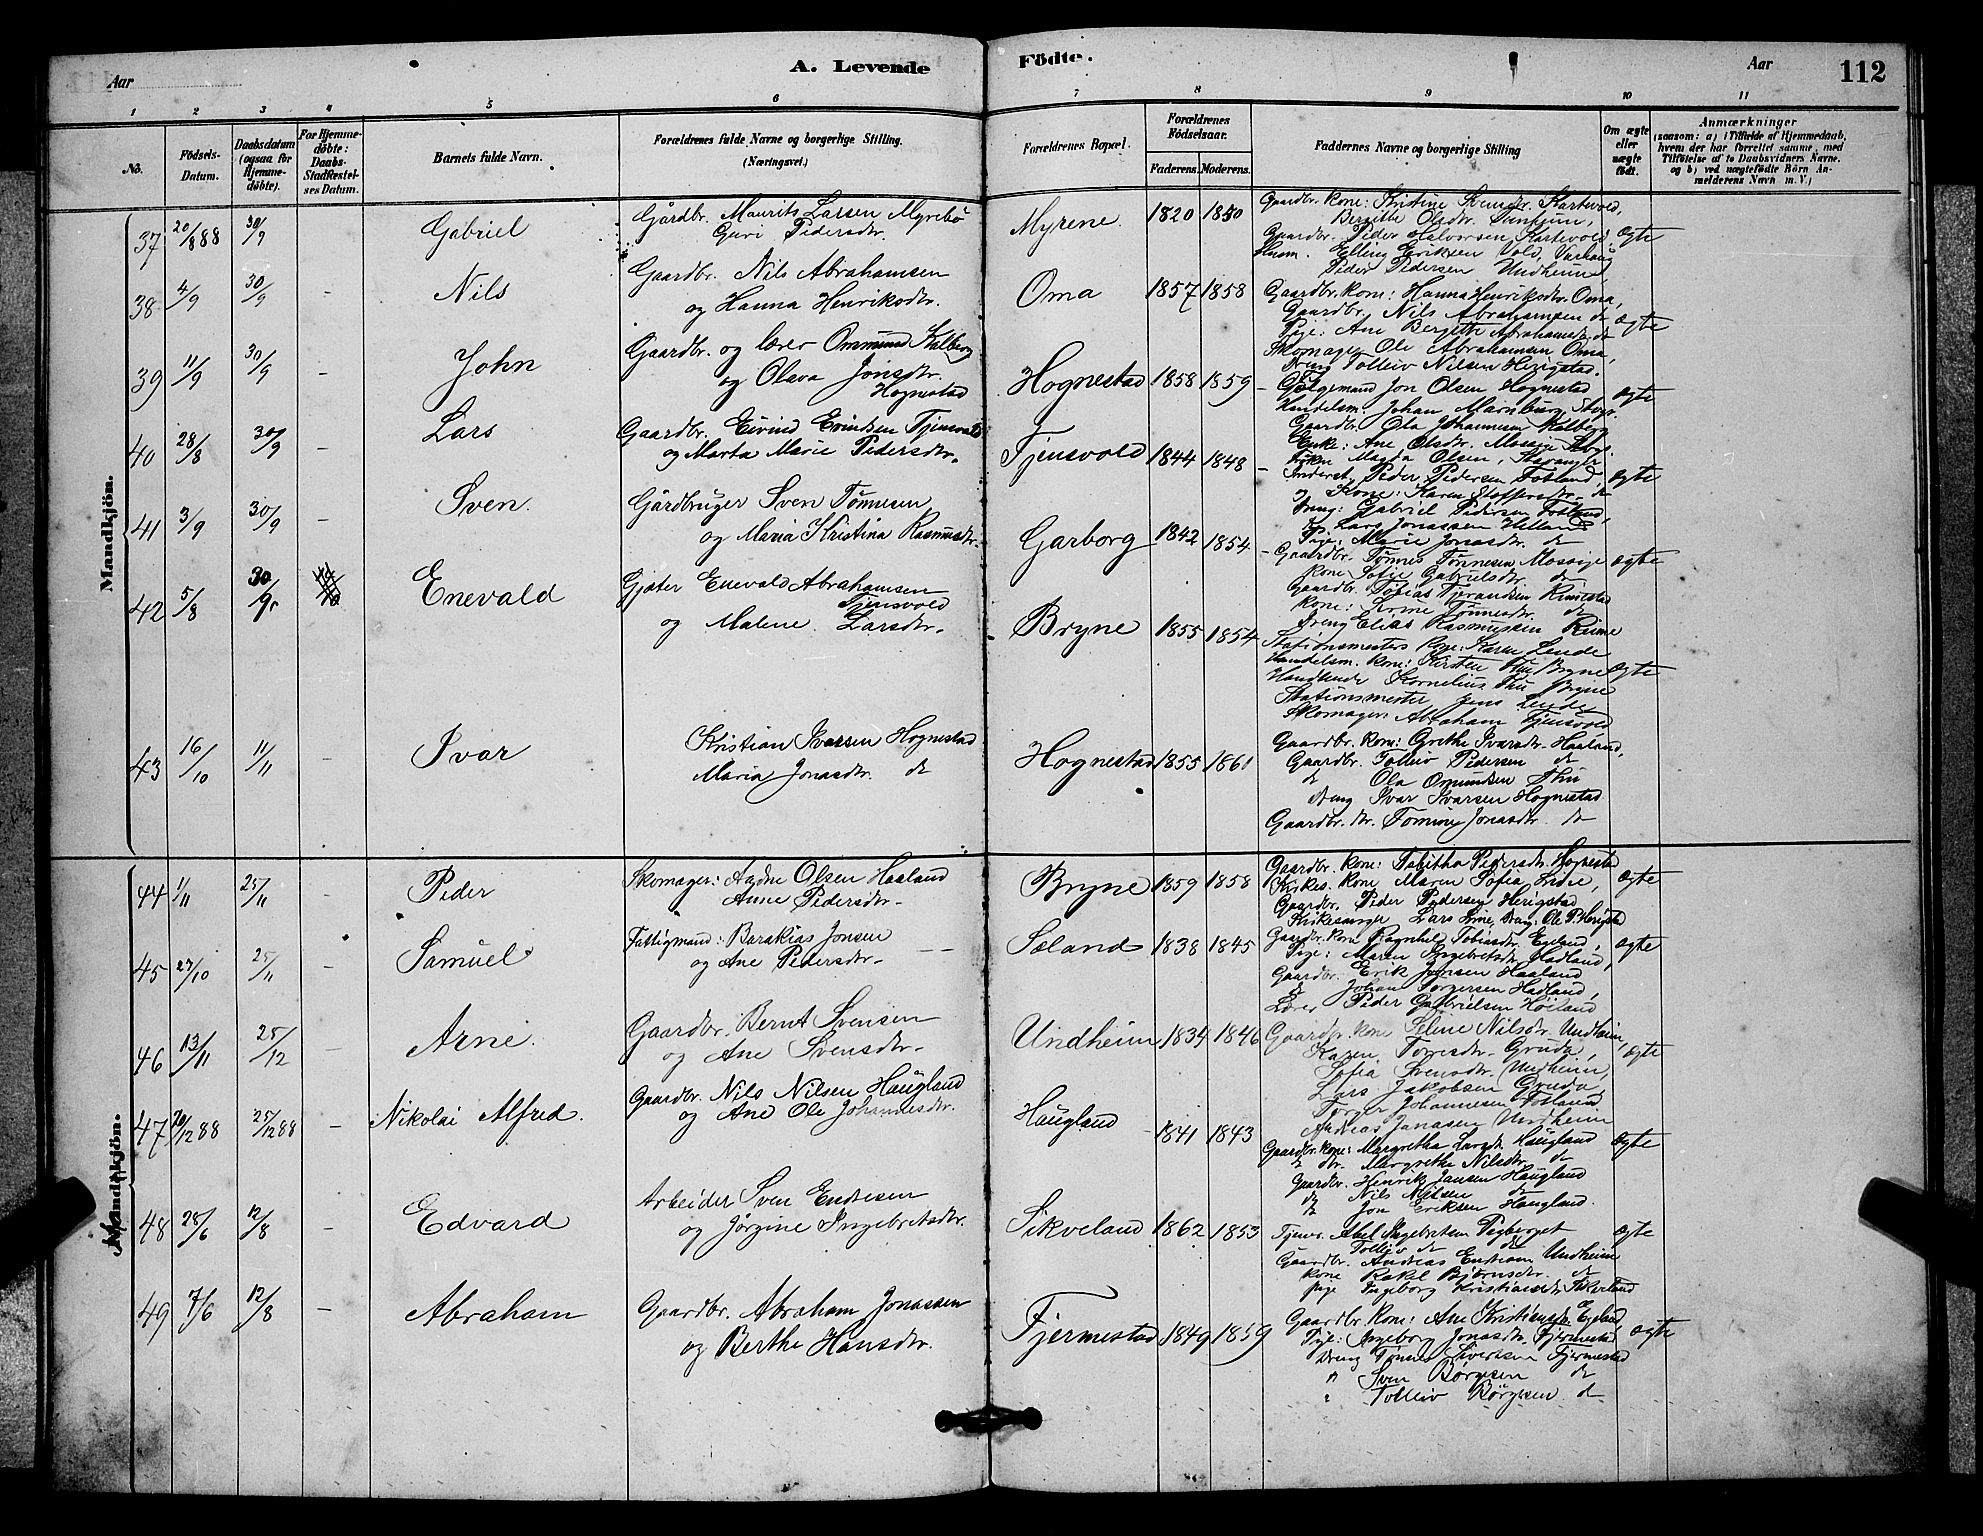 Aar
A. Levende
Födte.
Aar
112
1 2 3 4 5 6 7 8 9 10 11
No.
Födsels-Datum.
Daabsdatum (ogsaa for Hjemme-döbte).
For Hjemme-döbte: Daabs-Stadfæstel-ses Datum.
Barnets fulde Navn.
Forældrenes fulde Navne og borgerlige Stilling.
(Næringsvei.)
Forældrenes Bopæl.
Forældrenes Födselsaar.
Faderens. Moderens.
Faddernes Navne og borgerlige Stilling
Om ægte eller uægte födt.
Anmærkninger
(saasom: a) i Tilfælde af Hjemmedaab, hvem der har forrettet samme, med Tilföielse af to Daabsvidners Navne. og b) ved uægtefödte Börn An-melderens Navn m. V.)
Mandkjön.
37 20/8 88 30/9 Gabriel
Gårdbr. Maurits Larsen Myrebö
Guri Pedersdtr.
Myrene 1820 1850
Gaardbr. kone: Kristine Kartevold,
Bergithe Olsdtr.
Gaardbr. Peder Halvorsen Kartevold
Elling Eriksen Vold, Varhaug
Peder Pedersen Undheim
ægte
38 4/9 30/9 - Nils
Gaardbr. Nils Abrahamsen
og Hanna Henriksdtr.
Oma 1857 1858
Gaardbr. kone: Hanna Henriksdtr. Oma,
Gaardbr. Nils Abrahamsen do
Pige: Ane Bergitte Abrahamsdtr. do
Skomager Ole Abrahamsen Oma,
Dreng Tolleiv Nilsen Herigstad.
ægte
39 11/9 30/9 - John
Gaardbr. og lærer Ommund Kalberg
og Olava Jonsdtr.
Hognestad
Hognestad 1858 1859
Jon Olsen Hognestad
Handelsm. Johan
Gaardbr. Ola Johannesen Kalberg
Enke: Ane Olsdtr.
Magda Olsen, Stavanger
ægte
40 28/8 30/9 Lars
Gaardbr. Eivind Evindsen Tjensvold
og Marta Marie Pedersdtr.
Tjensvold 1844 1848
Peder Pedersen Fotland,
og Kone: Karen do
Dreng: Gabriel Pedersen Fotland,
Lars Jonassen Helland
Pige: Marie Jonasdtr. do
ægte
41 3/9 30/9 - Sven.
Gårdbruger Sven Tönnesen
og Maria Kristina Rasmusdtr.
Garborg 1842 1854
Gaardbr. Tönnes Tönnesen Mossige
kone Sofie Gabrielsdtr. do
Gaardbr. Tobias Tjerandsen
kone: Tönnesdtr. do
Dreng Elias Rasmussen Rime
ægte
42 5/8 30/9 Enevald
Gjæter Enevald Abrahamsen
Tjensvold
og Malene Larsdtr.
Bryne 1855 1854
Stationsmesters Pige: Karen Lende
Handelsm. kone: Kirsten Thu Bryne
Kornelius Thu Bryne
Stationsmester Jens Lende
Skomager: Abraham Tjensvold
ægte
43 16/10 11/11 - Ivar
Kristian Ivarsen Hognestad
Maria Jonasdtr. do
Hognestad 1855 1861
Gaardbr. kone: Grethe Ivarsdtr. Haaland,
Gaardbr. Tolleiv Pedersen do
do Ola Omundsen Thu
dreng Ivar Ivarsen Hognestad
Gaardbr. dtr. Tomine Jonasdtr. do
Mandkjön.
44 1/11 25/11 - Peder
Skomager: Aadne Olsen Haaland
Anne Pedersdtr.
Bryne 1859 1858
Gaardbr. kone: Tabitha Pedersdtr. Hognestad
kone Maren Sofia
Gaardbr. Peder Pedersen Herigstad
Kirkesanger Lars
ægte
45 27/10 25/11 - Samuel
Fattigmand: Barakias Jonsen
og Ane Pedersdtr.
Söland 1838 1845
Gaardbr. kone Ragnhil Tobiasdtr. Egeland,
Pige: Maren Ingebretsdtr. Hadland,
Gaardbr. Erik Jonsen Haaland
do Johan Torgersen Hadland,
Lærer Peder Gabrielsen Höiland
ægte
46 13/11 25/12 - Arne.
Gaardbr. Bernt Svensen
og Ane Svensdtr.
Undheim 1834 1846
Gaardbr. kone Nilsdtr. Undheim,
Karen Torresdtr. Gruda,
Sofia Svensdtr. Undheim,
Lars Jakobsen Gruda,
Torger Johannesen Fotland
Andreas Janasen Undheim
ægte
47 20/12 88 25/12 88 - Nikolai Alfred.
Gaardbr. Nils Nilsen Haugland
og Ane Ole Johannesdtr.
Haugland 1841 1843
Gaardbr. kone: Margretha Larsdtr. Haugland
do dtr. Margrethe Nilsdtr. do
Gaardbr. Henrik Jansen Haugland
do Nils Nilsen do
do Jon Eriksen Haugland.
ægte
48 28/6 12/8 - Edvard
Arbeider Sven Endresen
og Jörgine Ingebretsdtr.
Sikveland 1862 1853
Tjener Abel Ingebretsen
Tolleiv do do
Gaardbr. Andreas Undheim
kone Rakel Björnsdtr. do
pige Ingeborg Kristiansdtr. Sikveland
ægte
49 7/6 12/8 - Abraham
Gaardbr. Abraham Jonassen
og Berthe Hansdtr.
Fjermestad 1849 1859
Gaardbr. Kone: Ane Kristiansdtr. Egeland,
Pige: Ingeborg Jonasdtr. Fjermestad,
Dreng Tönnes Sivertsen Fjermestad
" Sven Börgesen do
" Tolleiv Börgesen do
ægte